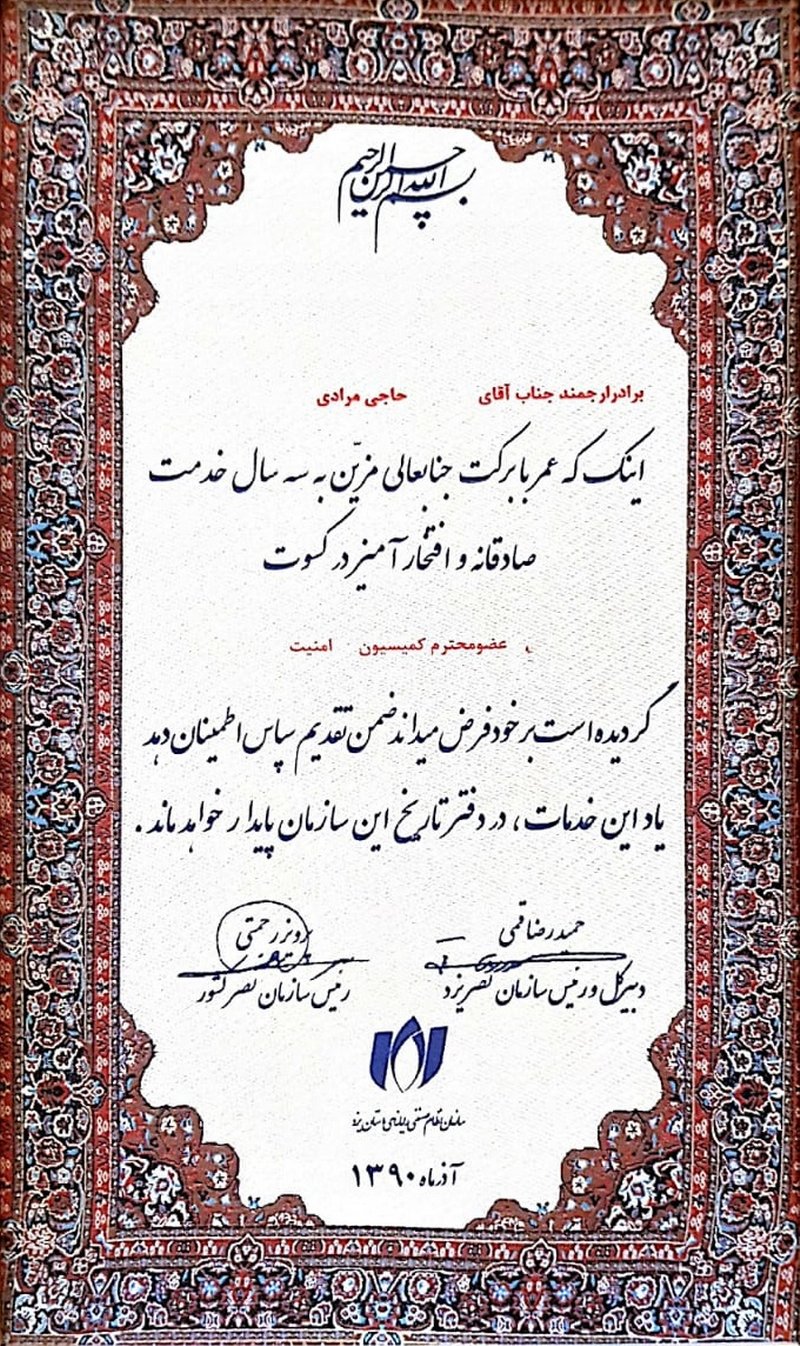 بسم الله الرحمن الرحیم
برادر ارجمند جناب آقای حاجی مرادی
اینک که عمر با برکت جنابعالی مزیّن به سه سال خدمت
صادقانه و افتخار آمیز در کسوت
عضو محترم کمیسیون امنیت
گردیده است بر خود فرض میداند ضمن تقدیم سپاس اطمینان دهد
یاد این خدمات، در دفتر تاریخ این سازمان پایدار خواهد ماند.
حمیدرضا قمی
دبیر کل و رئیس سازمان نصر یزد
پرویز رحمتی
رئیس سازمان نصر کشور
سازمان نظام صنفی رایانه‌ای استان یزد
آذر ماه ۱۳۹۰